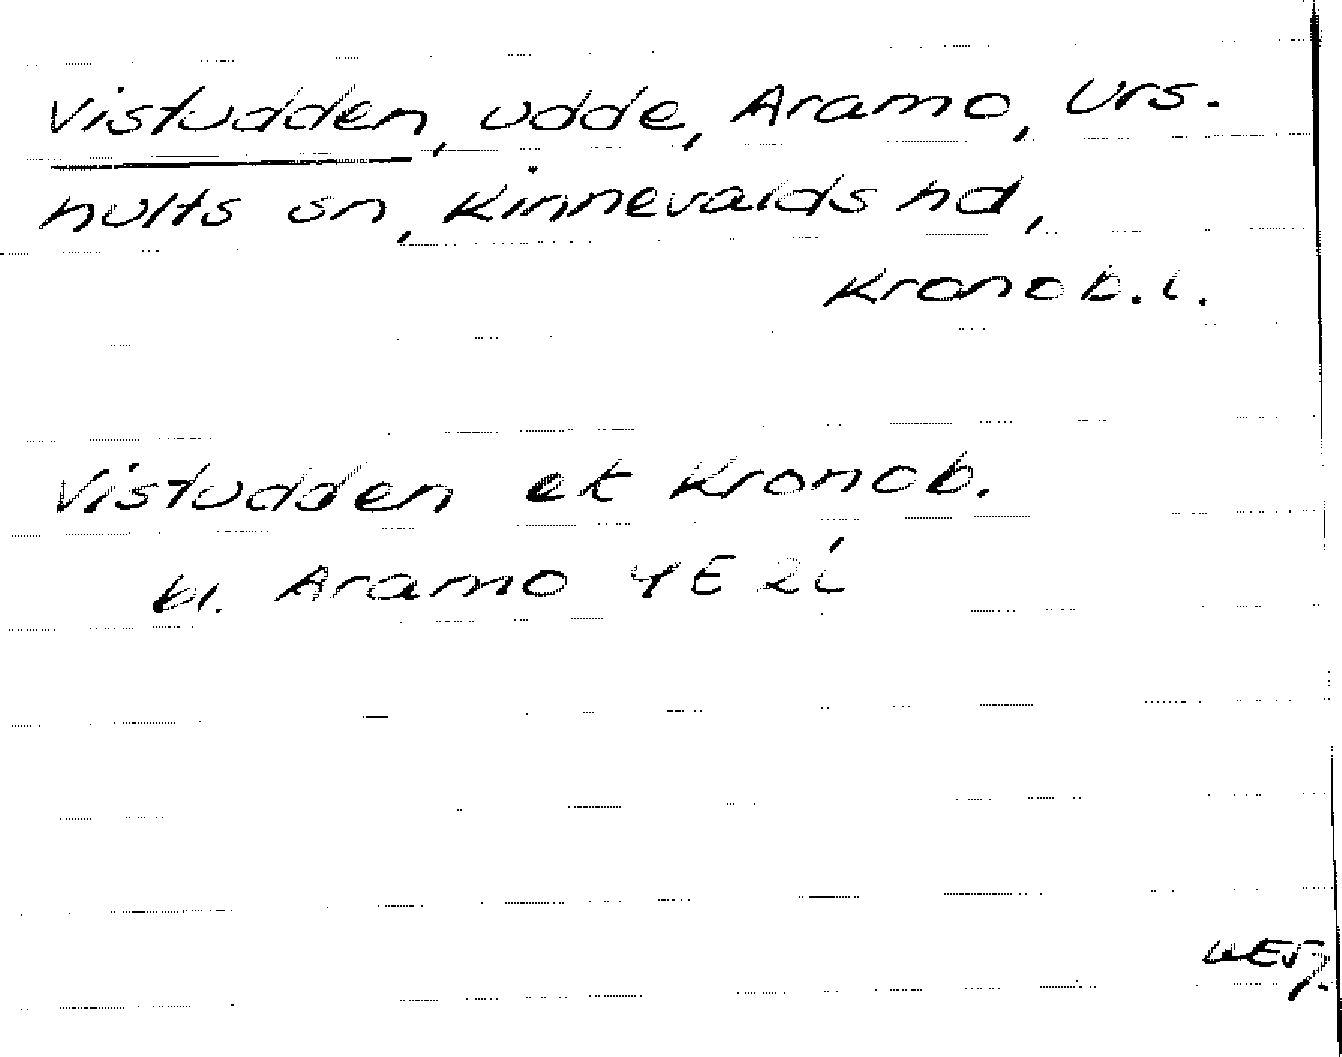 Vistudden, udde, Aramo, Urs-
hults sn, Kinnevalds hd,
Kronob. l.
Vistudden ek Kronob.
bl. Aramo 4E 2i